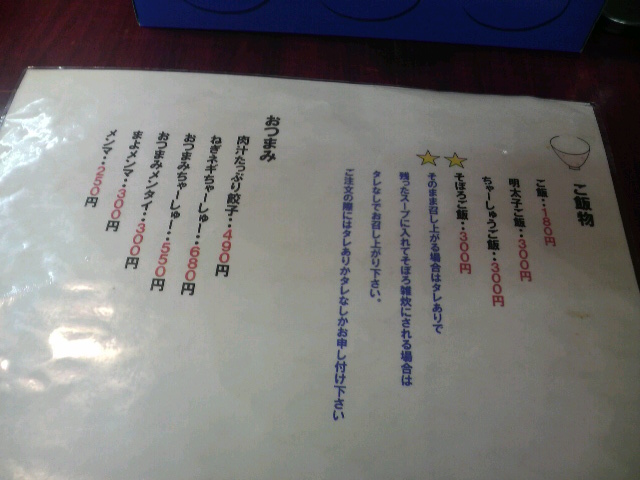 ご飯物
ご飯・・180円
明太子ご飯・・300円
ちゃーしゅうご飯・・300円
☆☆そぼろご飯・・300円
そのまま召し上がる場合はタレありで
残ったスープに入れてそぼろ雑炊にされる場合は
タレなしでお召し上がり下さい。
ご注文の際にはタレありかタレなしかお申し付け下さい
おつまみ
肉汁たっぷり餃子・・490円
ねぎネギちゃーしゅー・・680円
おつまみちゃーしゅー・・550円
おつまみメンタイ・・300円
まよメンマ・・300円
メンマ・・250円